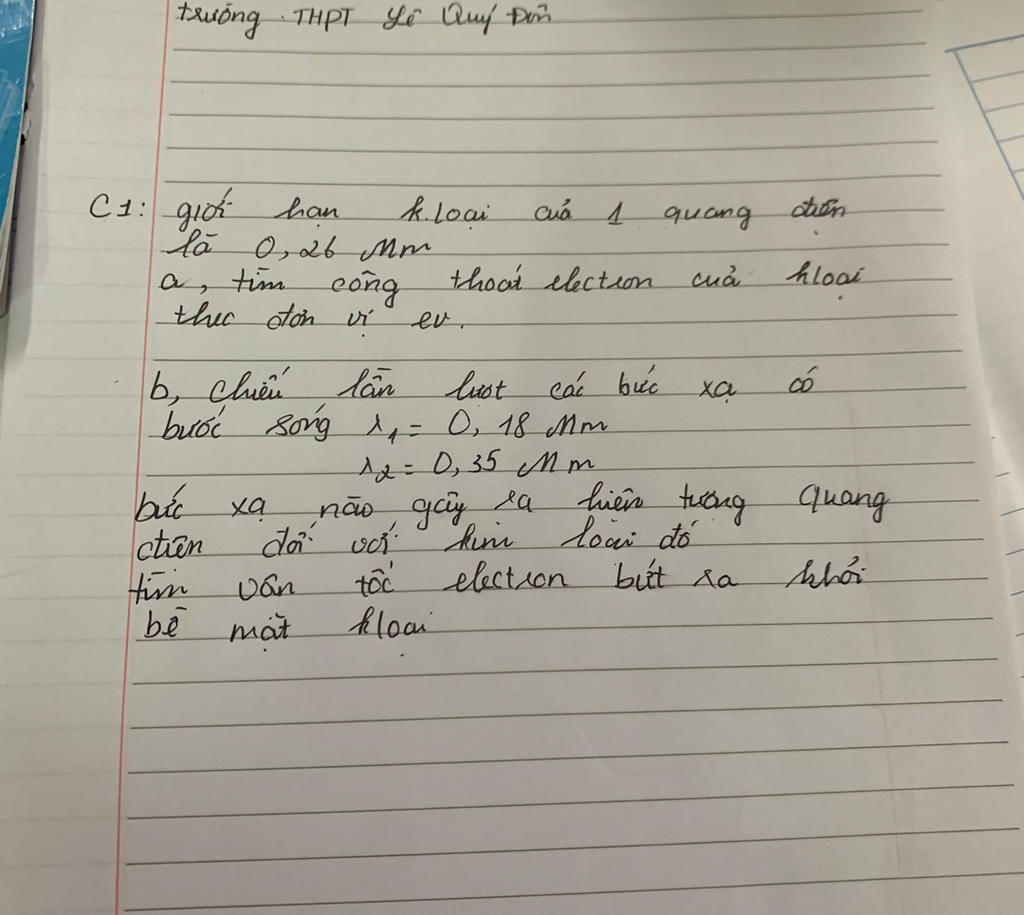 trường. THPT Lê Quý Đôn
C1: giới hạn k.loại của 1 quang điện
là 0,26 Mm
a, tìm công thoát electron của kloại
thuc đơn vị ev.
b, Chiếu lần lượt các bức xạ có
bước sóng λ1 = 0,18 Mm
λ2 = 0,35 Mm
bức xạ nào gây ra hiện tượng quang
điện đối với kim loại đó
tìm vân tốc electron bứt ra khỏi
bề mặt kloại